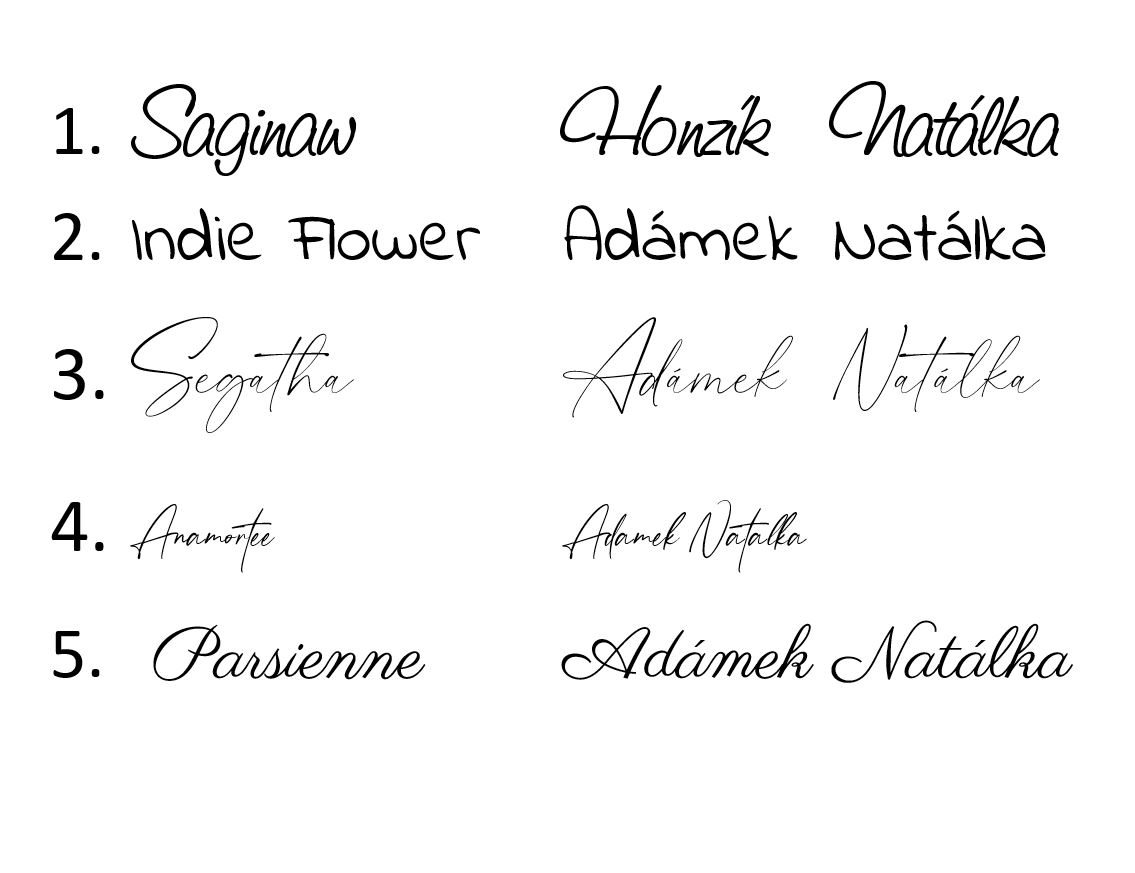 1. Saginaw Honzík Natálka
2. Indie Flower Adámek Natálka
3. Segatha Adámek Natálka
4. Anamortee Adamek Natalka
5. Parsienne Adámek Natálka